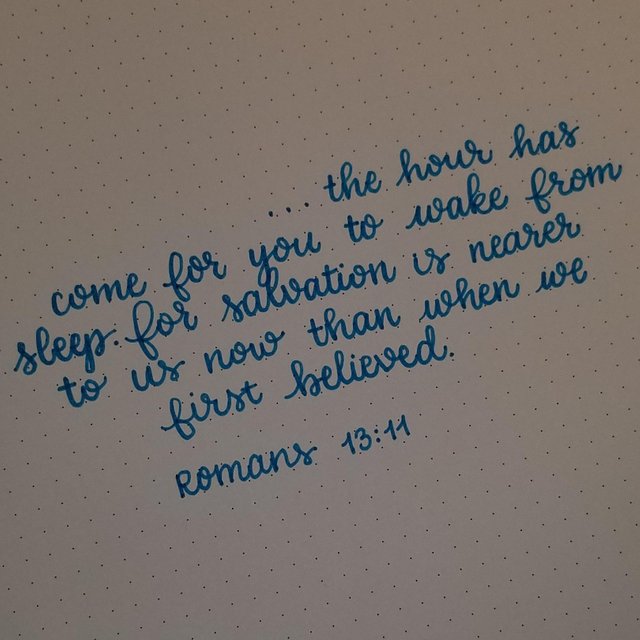 ... the hour has
come for you to wake from
sleep. for salvation is nearer
to us now than when we
first believed.
Romans 13:11